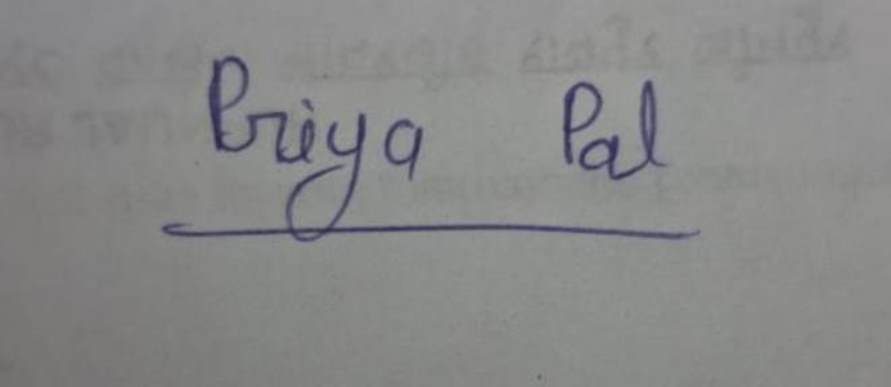 Priya Pal